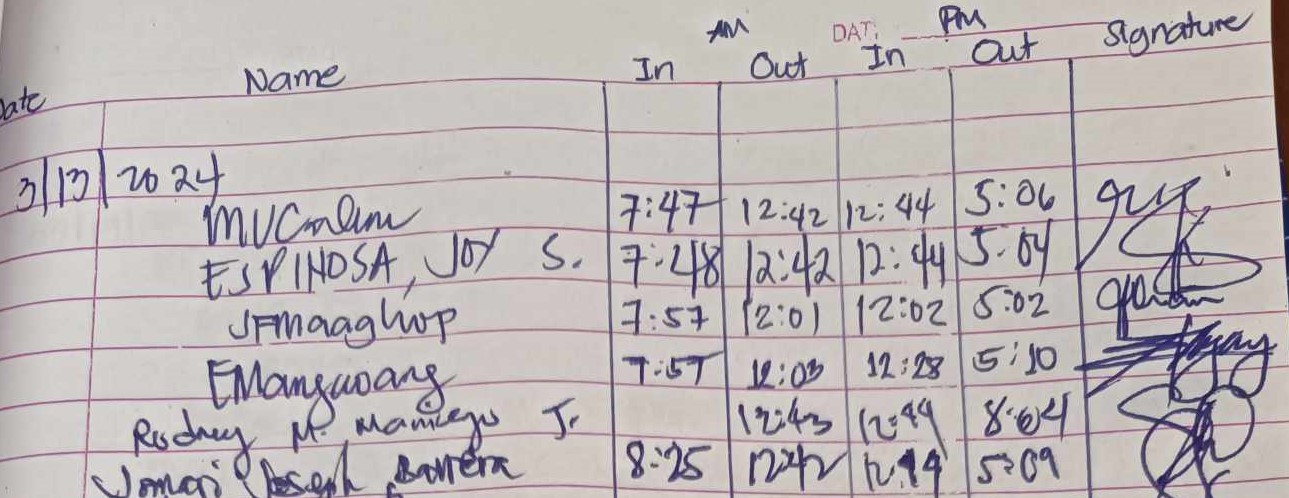 AM DAT: PM
Date Name In Out In Out Signature
3/13/2024
7:47 12:42 12:44 5:06
ESPINOSA, JOY S. 7:48 12:42 12:44 5:04
JFMaaghop 7:57 12:01 12:02 5:02
EMangwang 7:57 12:03 12:28 5:10
Rodney M. Jr. 12:43 12:44 8:04
Jomari Joseph Barrera 8:25 12:42 12:44 5:09